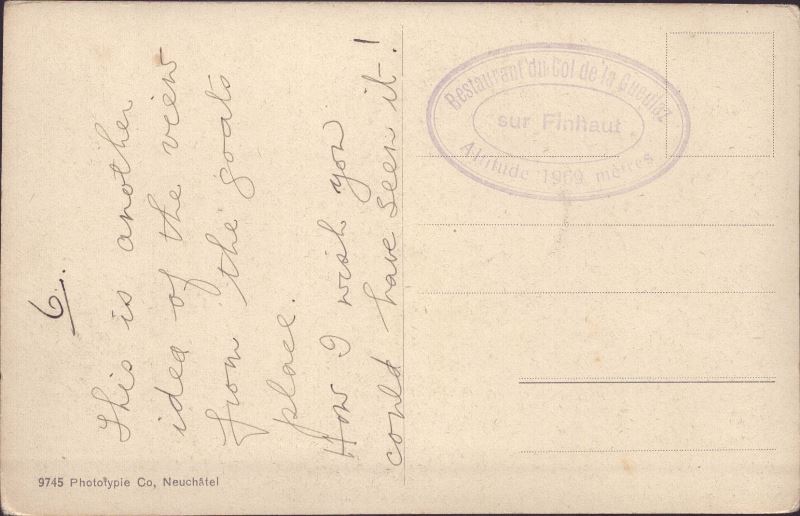 6.
This is another
idea of the view
from the goats
place.
How I wish you
could have seen it!
Restaurant du Col de la Gueulaz
sur Finhaut
Altitude 1969 mètres
9745 Phototypie Co, Neuchâtel